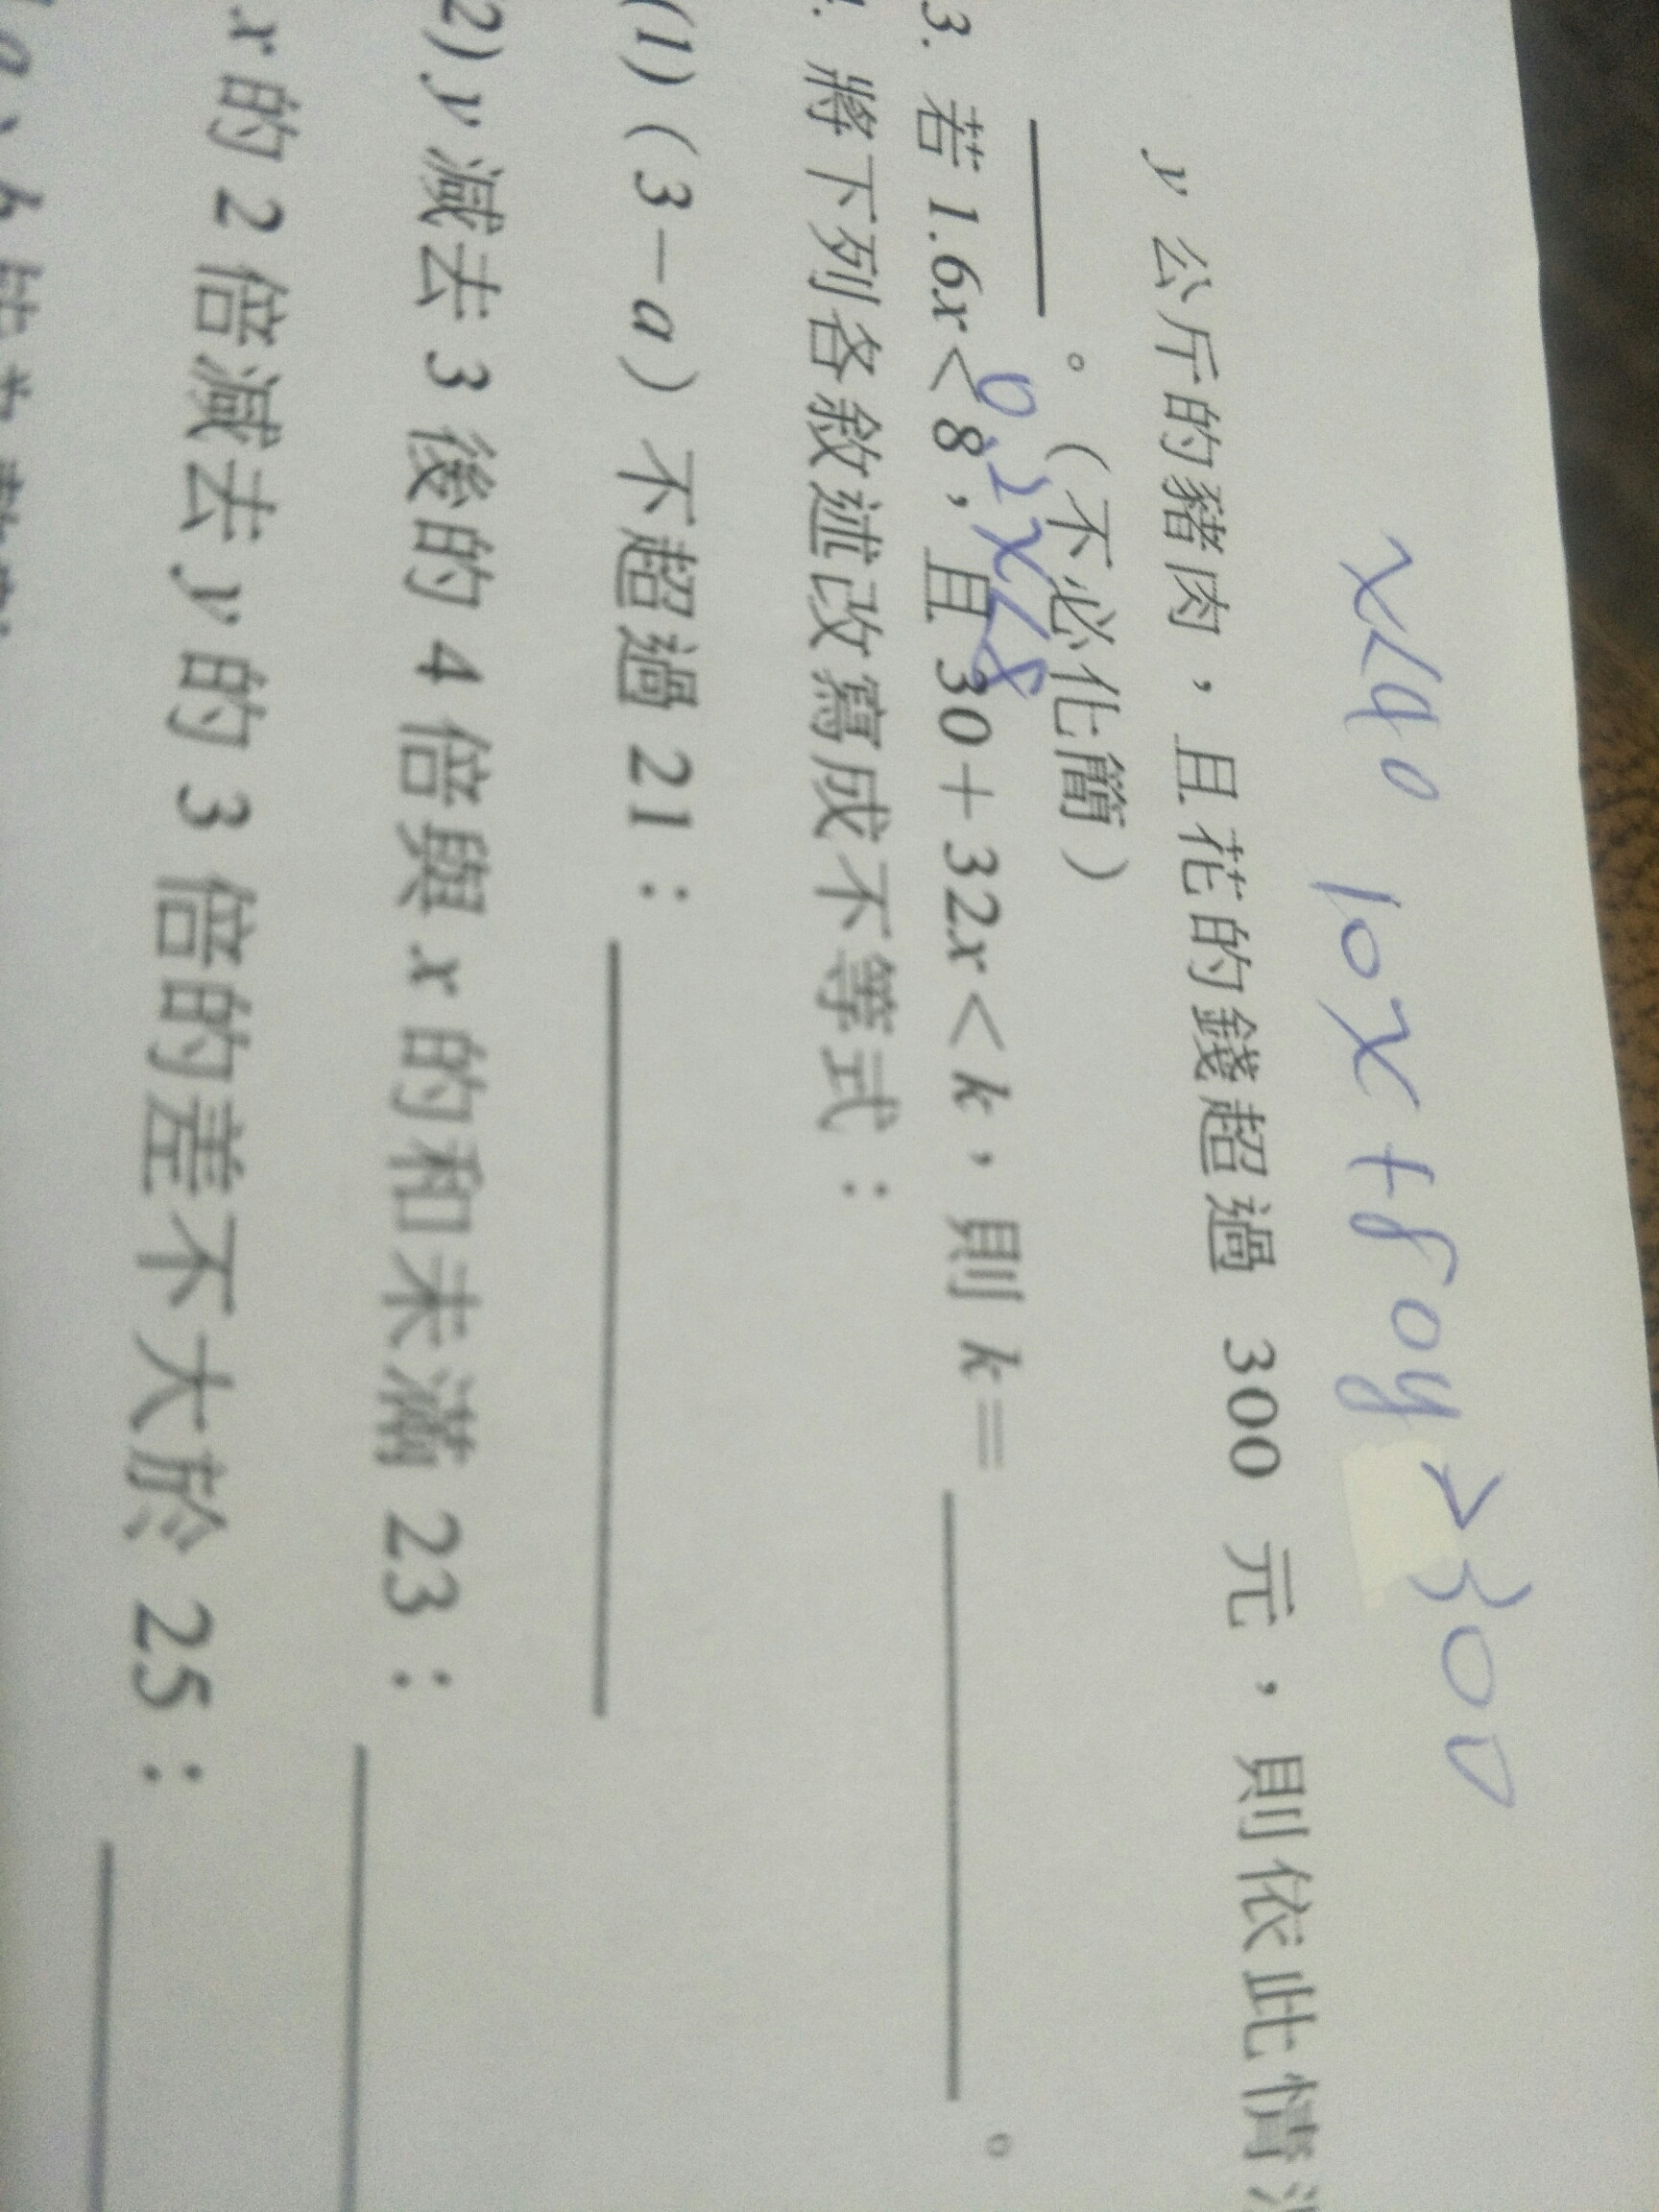 x<40 10x+80y>300
y 公斤的豬肉，且花的錢超過 300 元，則依此情
。（不必化簡）
0.2x<8
3. 若 1.6x<8，且 30+32x<k，則 k= 。
將下列各敘述改寫成不等式：
(1)（3-a）不超過 21：
2) y 減去 3 後的 4 倍與 x 的和未滿 23：
x 的 2 倍減去 y 的 3 倍的差不大於 25：